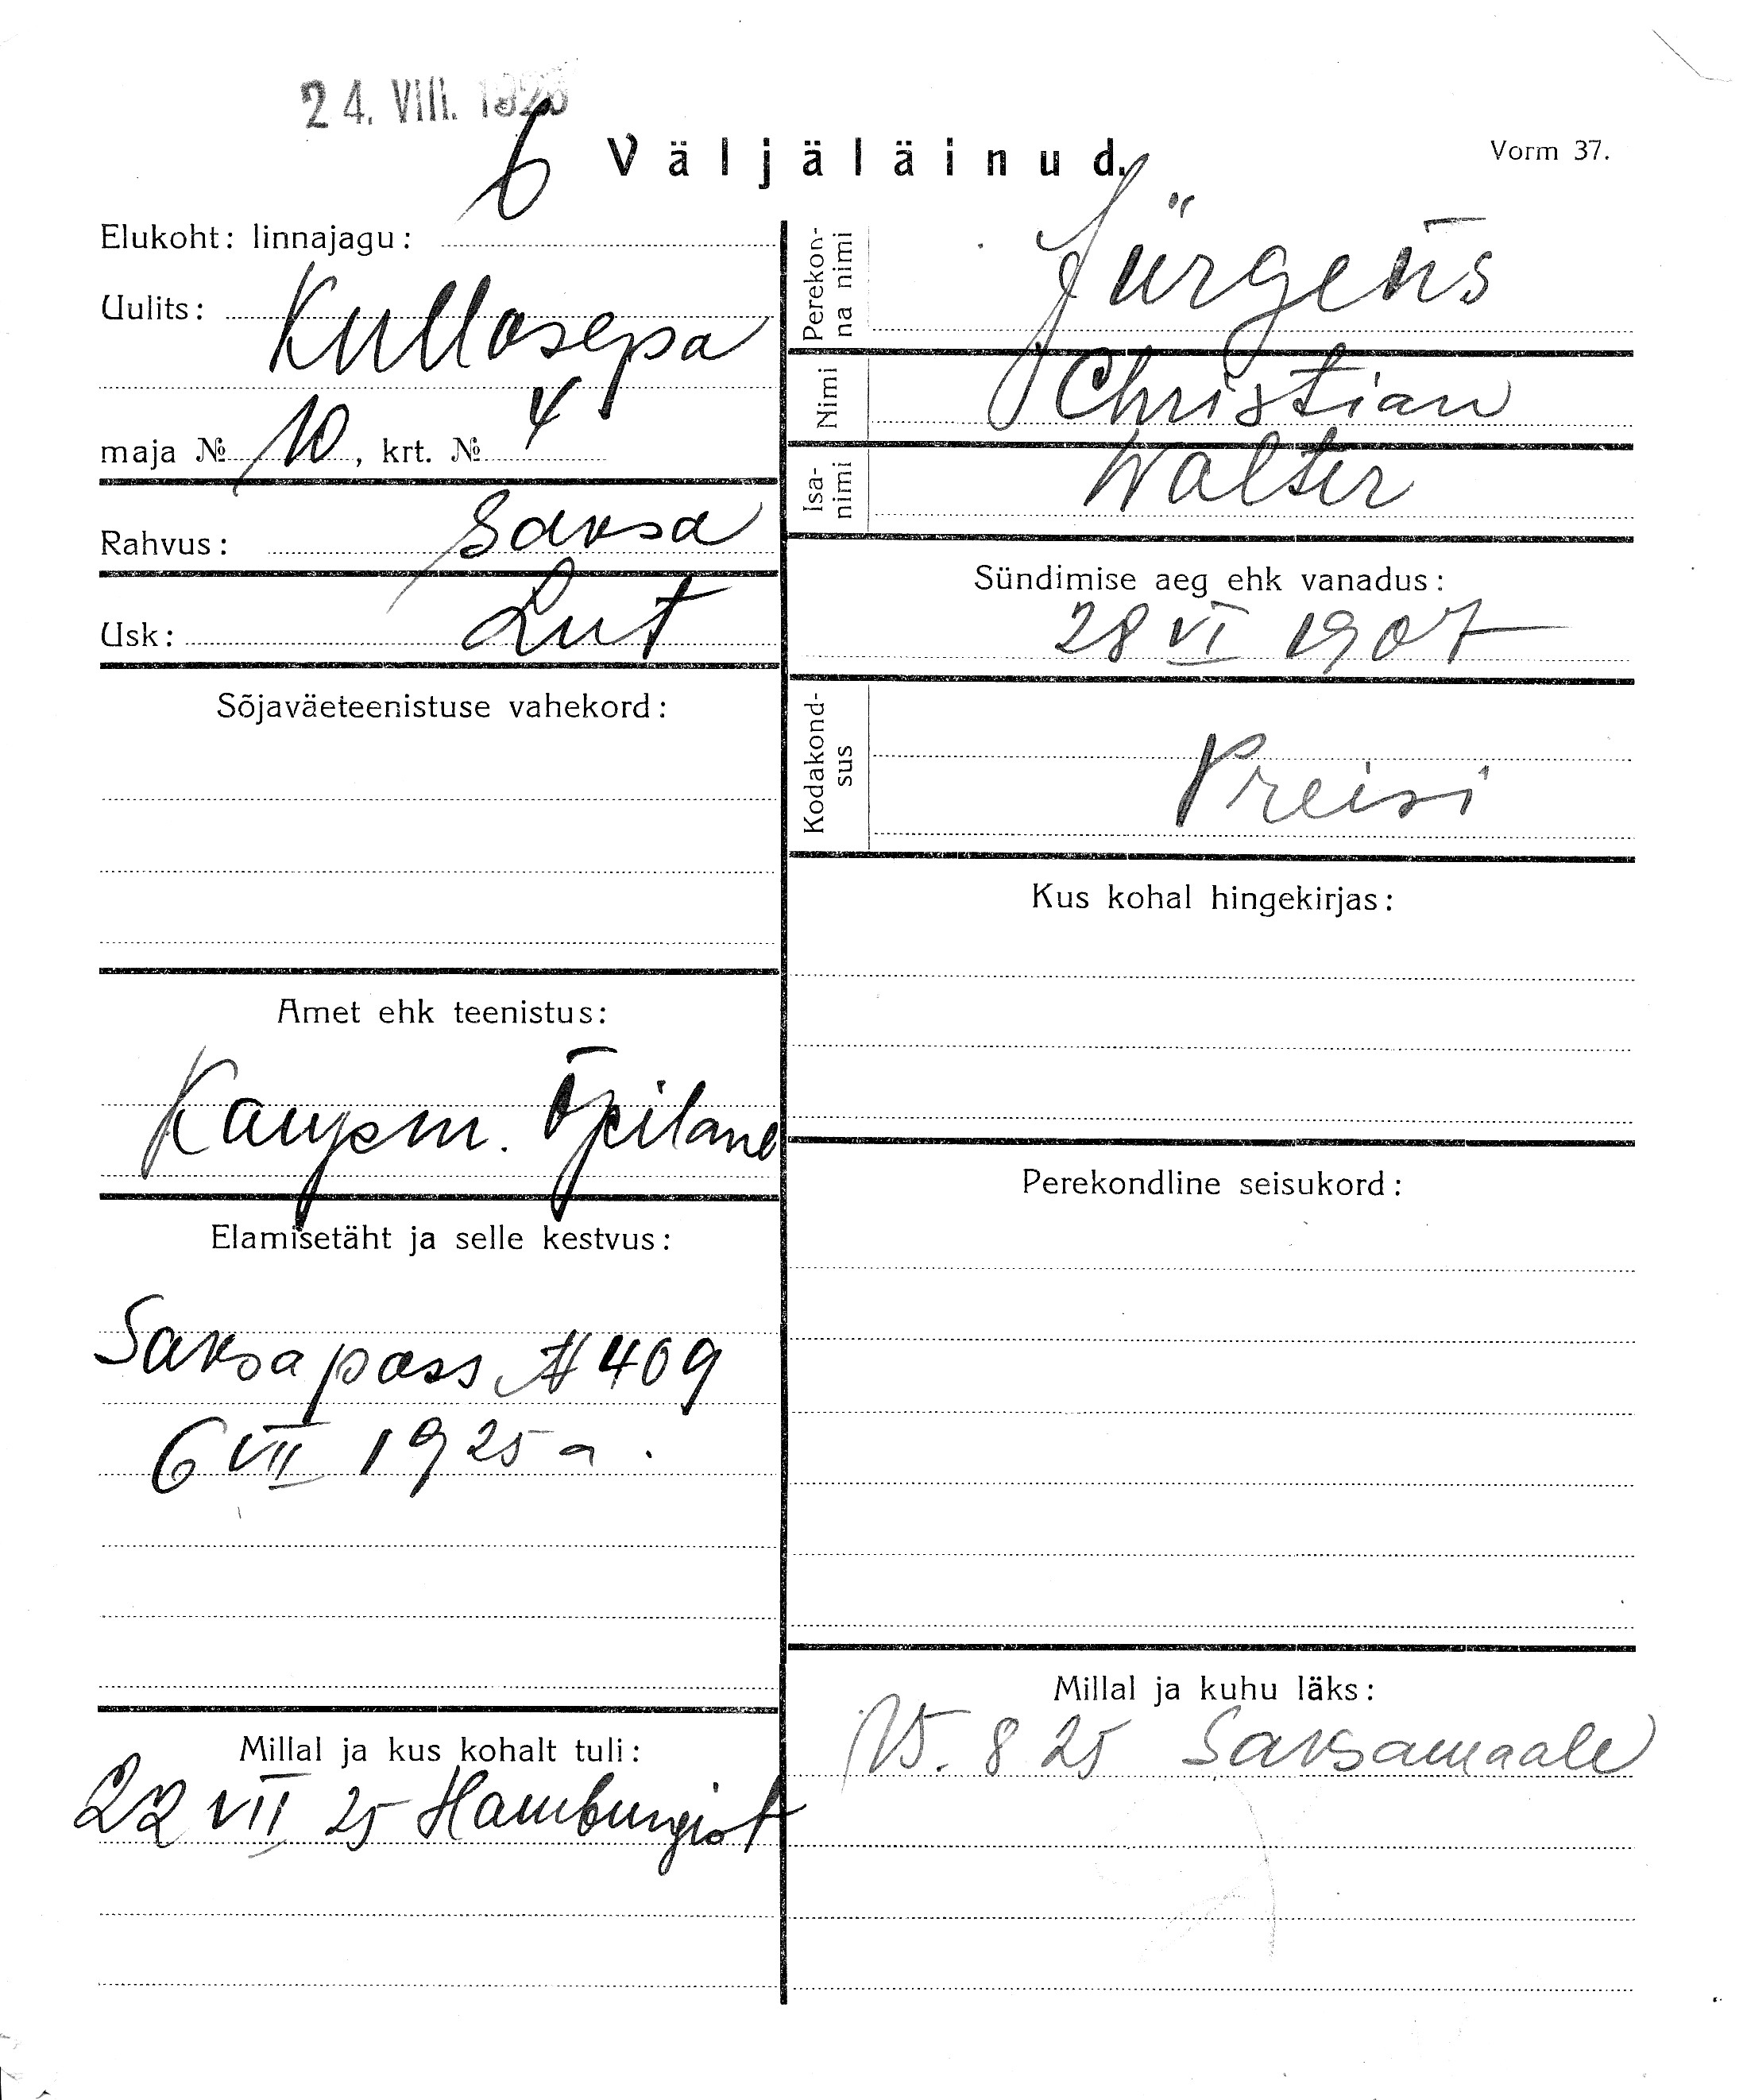 24. VIII. 1925
Väljäläinud.
Vorm 37.
Elukoht: linnajagu: 6
Uulits: Kullasepa
maja № 10, krt. № 4
Rahvus: Saksa
Usk: Lut
Sõjaväeteenistuse vahekord:
Amet ehk teenistus:
Kaupm. Õpilane
Elamisetäht ja selle kestvus:
Saksa pass № 409
6 VII 1925 a.
Millal ja kus kohalt tuli:
22 VII 25 Hamburgist
Perekon-
na nimi
Jürgens
Nimi Christian
Isa-
nimi
Walter
Sündimise aeg ehk vanadus:
28 VI 1907
Kodakond-
sus
Preisi
Kus kohal hingekirjas:
Perekondline seisukord:
Millal ja kuhu läks:
15. 8 25 Saksamaale